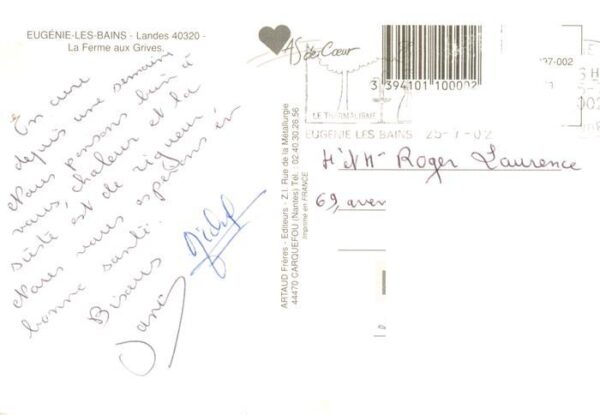 EUGÉNIE-LES-BAINS - Landes 40320 -
La Ferme aux Grives.
En cure
depuis une semaine
Nous pensons bien à
vous, chaleur et la
sieste est de rigueur !
Nous vous espérons en
bonne santé.
Bisous
Michel
ARTAUD Frères - Editeurs - Z.I. Rue de la Métallurgie
44470 CARQUEFOU (Nantes) Tél. 02.40.30.26.56
Imprimé en FRANCE
AS de Cœur
3 394101 100002
LE THERMALISME
EUGENIE LES BAINS 25-7-02
Roger Laurence
69, aven